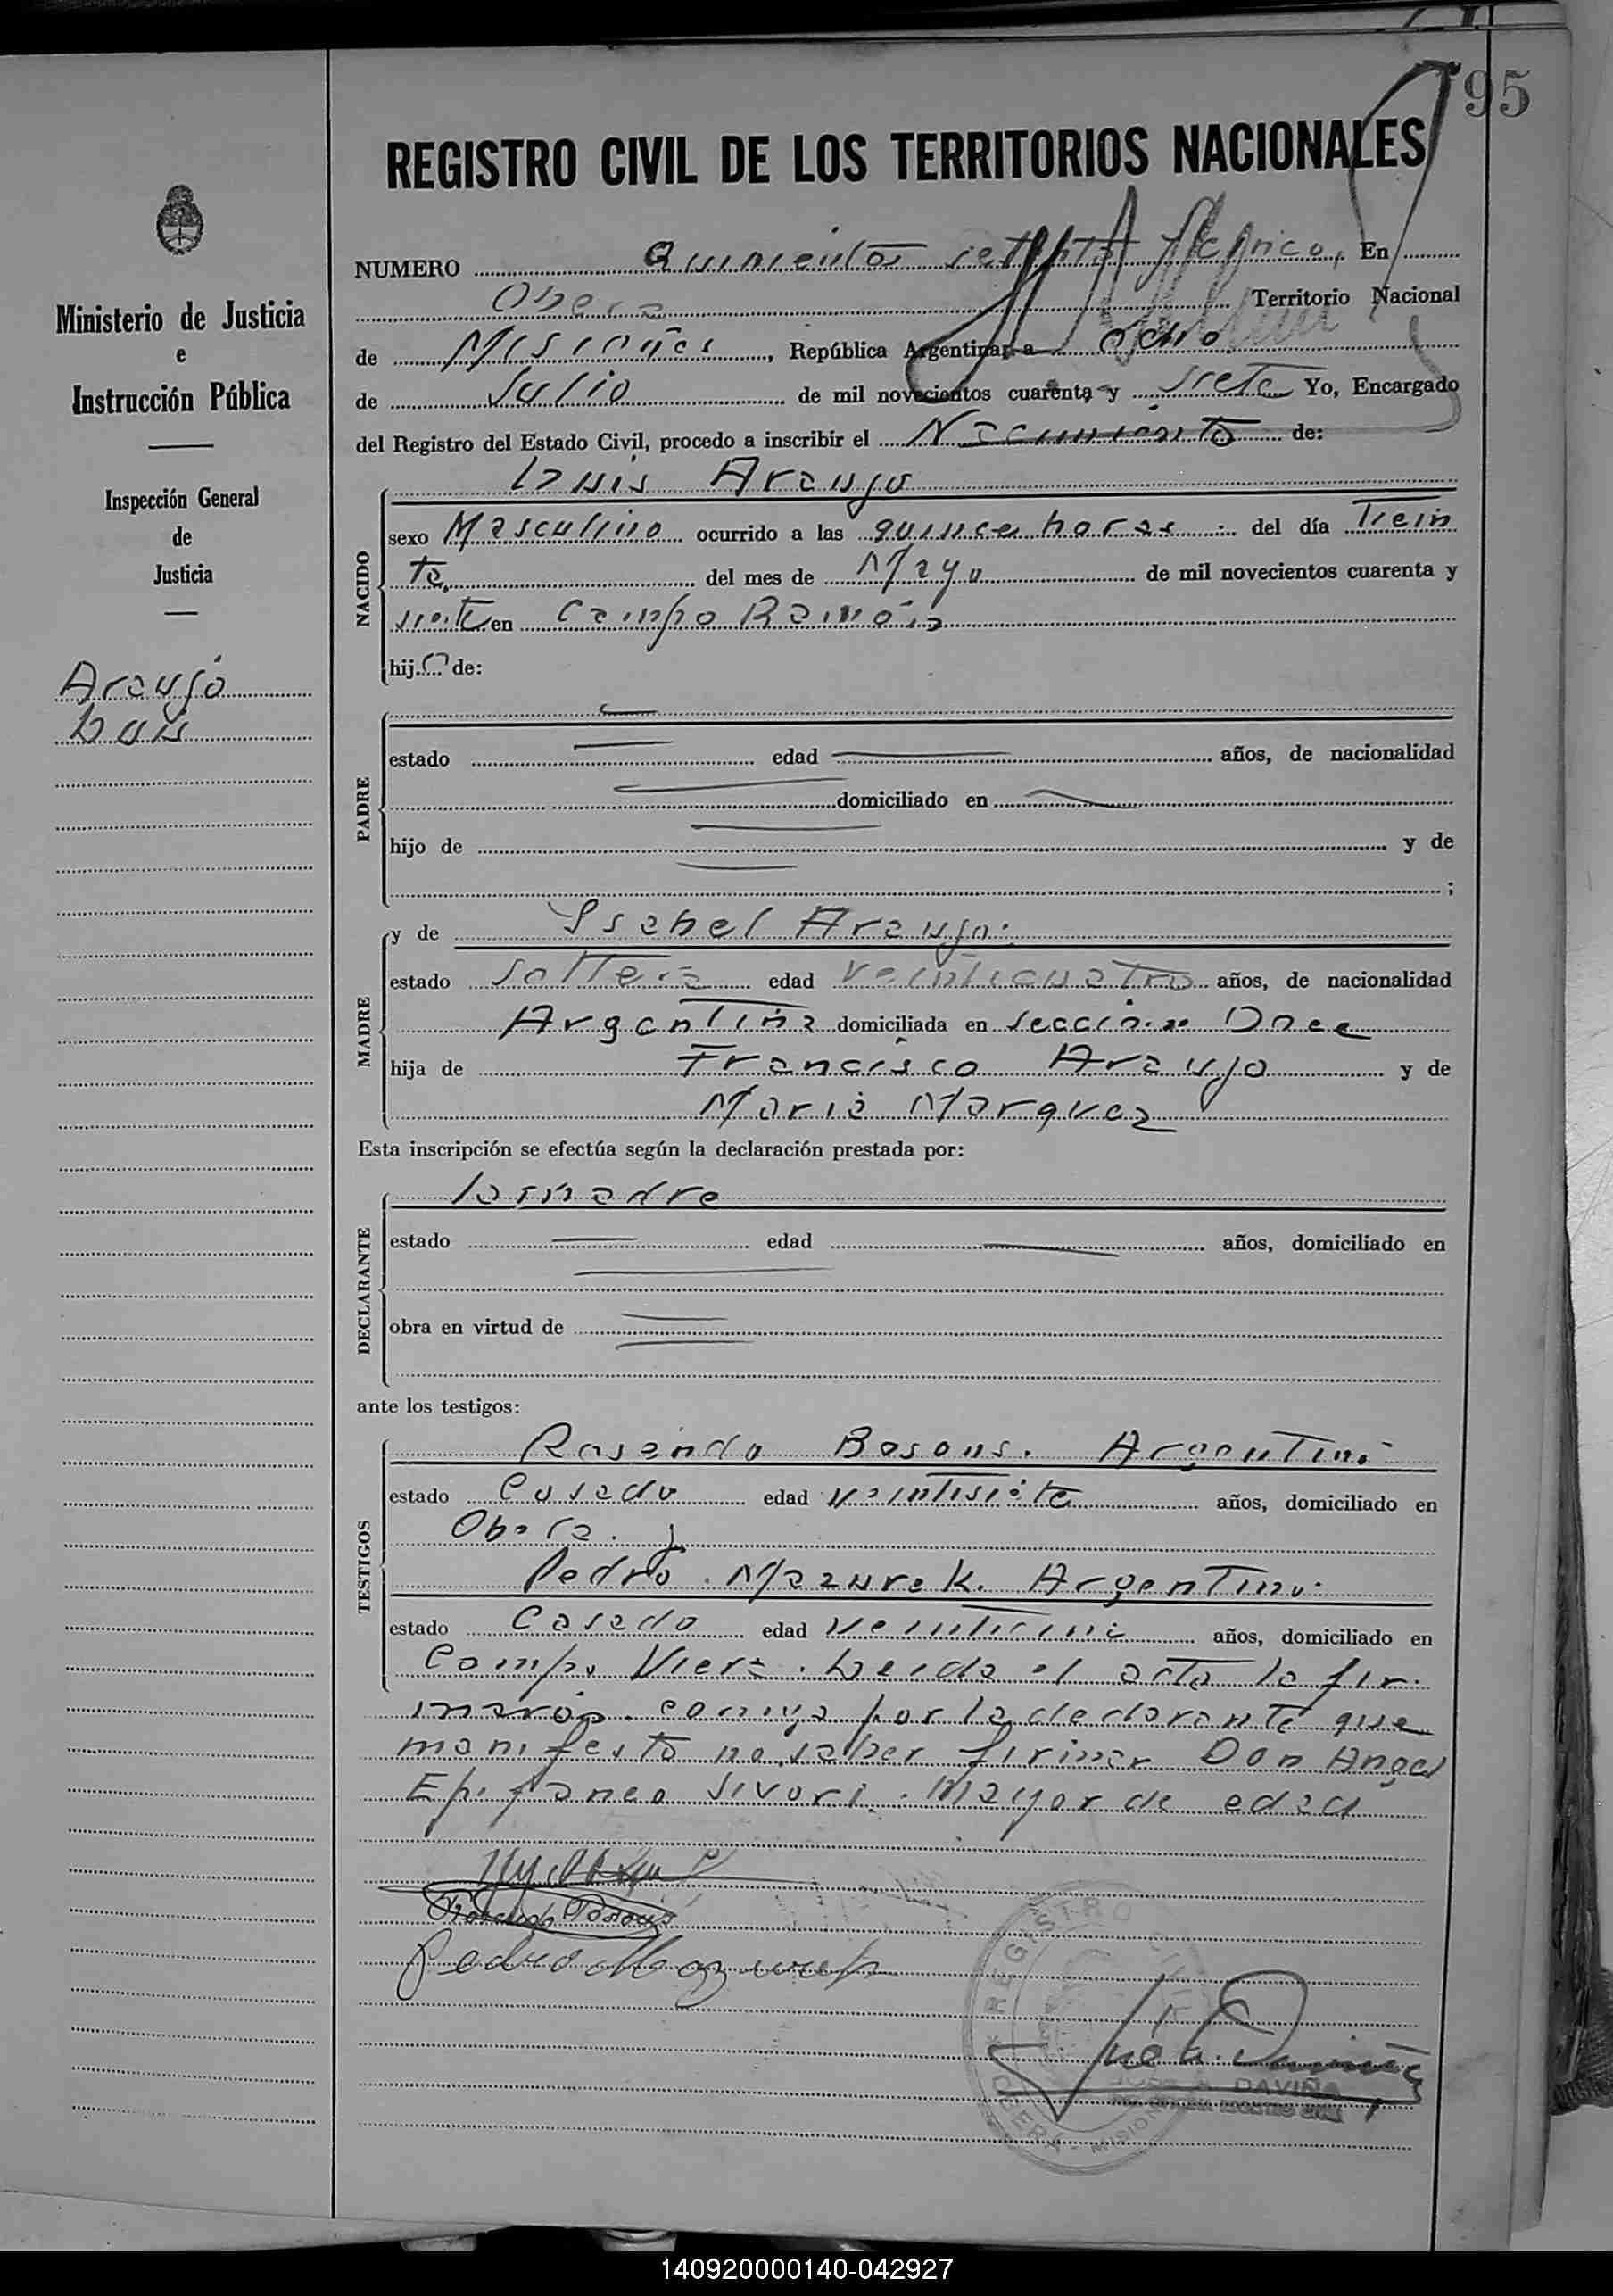 95
REGISTRO CIVIL DE LOS TERRITORIOS NACIONALES
Ministerio de Justicia
e
Instrucción Pública
Inspección General
de
Justicia
Araujo
Luis
NUMERO Quinientos setenta y cinco, En
Obera Territorio Nacional
de Misiones, República Argentina, a ocho
de Julio de mil novecientos cuarenta y siete Yo, Encargado
del Registro del Estado Civil, procedo a inscribir el Nacimiento de:
NACIDO
Luis Araujo
sexo Masculino ocurrido a las quince horas del día Trein
ta del mes de Mayo de mil novecientos cuarenta y
siete en Campo Ramón
hijo de:
PADRE
estado edad años, de nacionalidad
domiciliado en
hijo de y de
;
MADRE
y de Ysabel Araujo.
estado soltera edad veinticuatro años, de nacionalidad
Argentina domiciliada en seccion Doce
hija de Francisco Araujo y de
Maria Marquez
Esta inscripción se efectúa según la declaración prestada por:
DECLARANTE
la madre
estado edad años, domiciliado en
obra en virtud de
ante los testigos:
TESTIGOS
Rosendo Argentino
estado Casado edad veintisiete años, domiciliado en
Obera. y
Pedro Mazurek. Argentino.
estado Casado edad años, domiciliado en
Campo Viera. Leida el acta la fir.
maron. conmigo por la declarante que
manifesto no saber firmar Don Angel
Epifaneo Sivori. Mayor de edad
Pedro Mazurek
REGISTRO CIVIL
OBERA - MISIONES
JOSE A. DAVIÑA
140920000140-042927